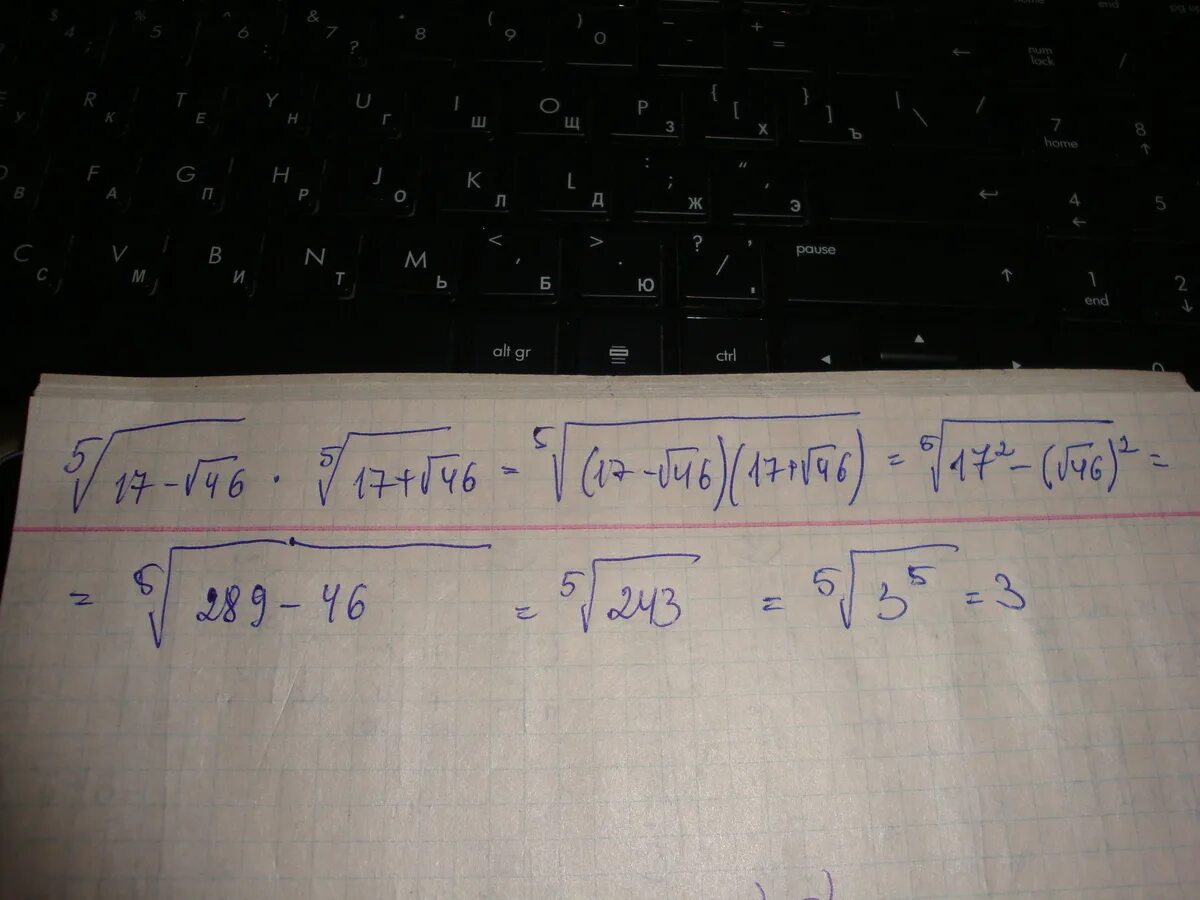 $ 4 % 5 ^ 6 : & 7 ? 8 ( 9 ) 0 _ - + = ← num lock /
E У R К T Е Y Н U Г I Ш O Щ P З { [ Х } ] Ъ | \ / 7 home 8 ↑
D В F А G П H Р J О K Л L Д : ; Ж " ' Э ↵ 4 ← 5
C С V М B И N Т M Ь < , Б > . Ю ? / , . pause ↑ 1 end 2 ↓
alt gr ctrl ◄ ▲ ► 0
⁵√(17-√46) · ⁵√(17+√46) = ⁵√((17-√46)(17+√46)) = ⁵√(17²-(√46)²) =
= ⁵√(289-46) = ⁵√243 = ⁵√3⁵ = 3